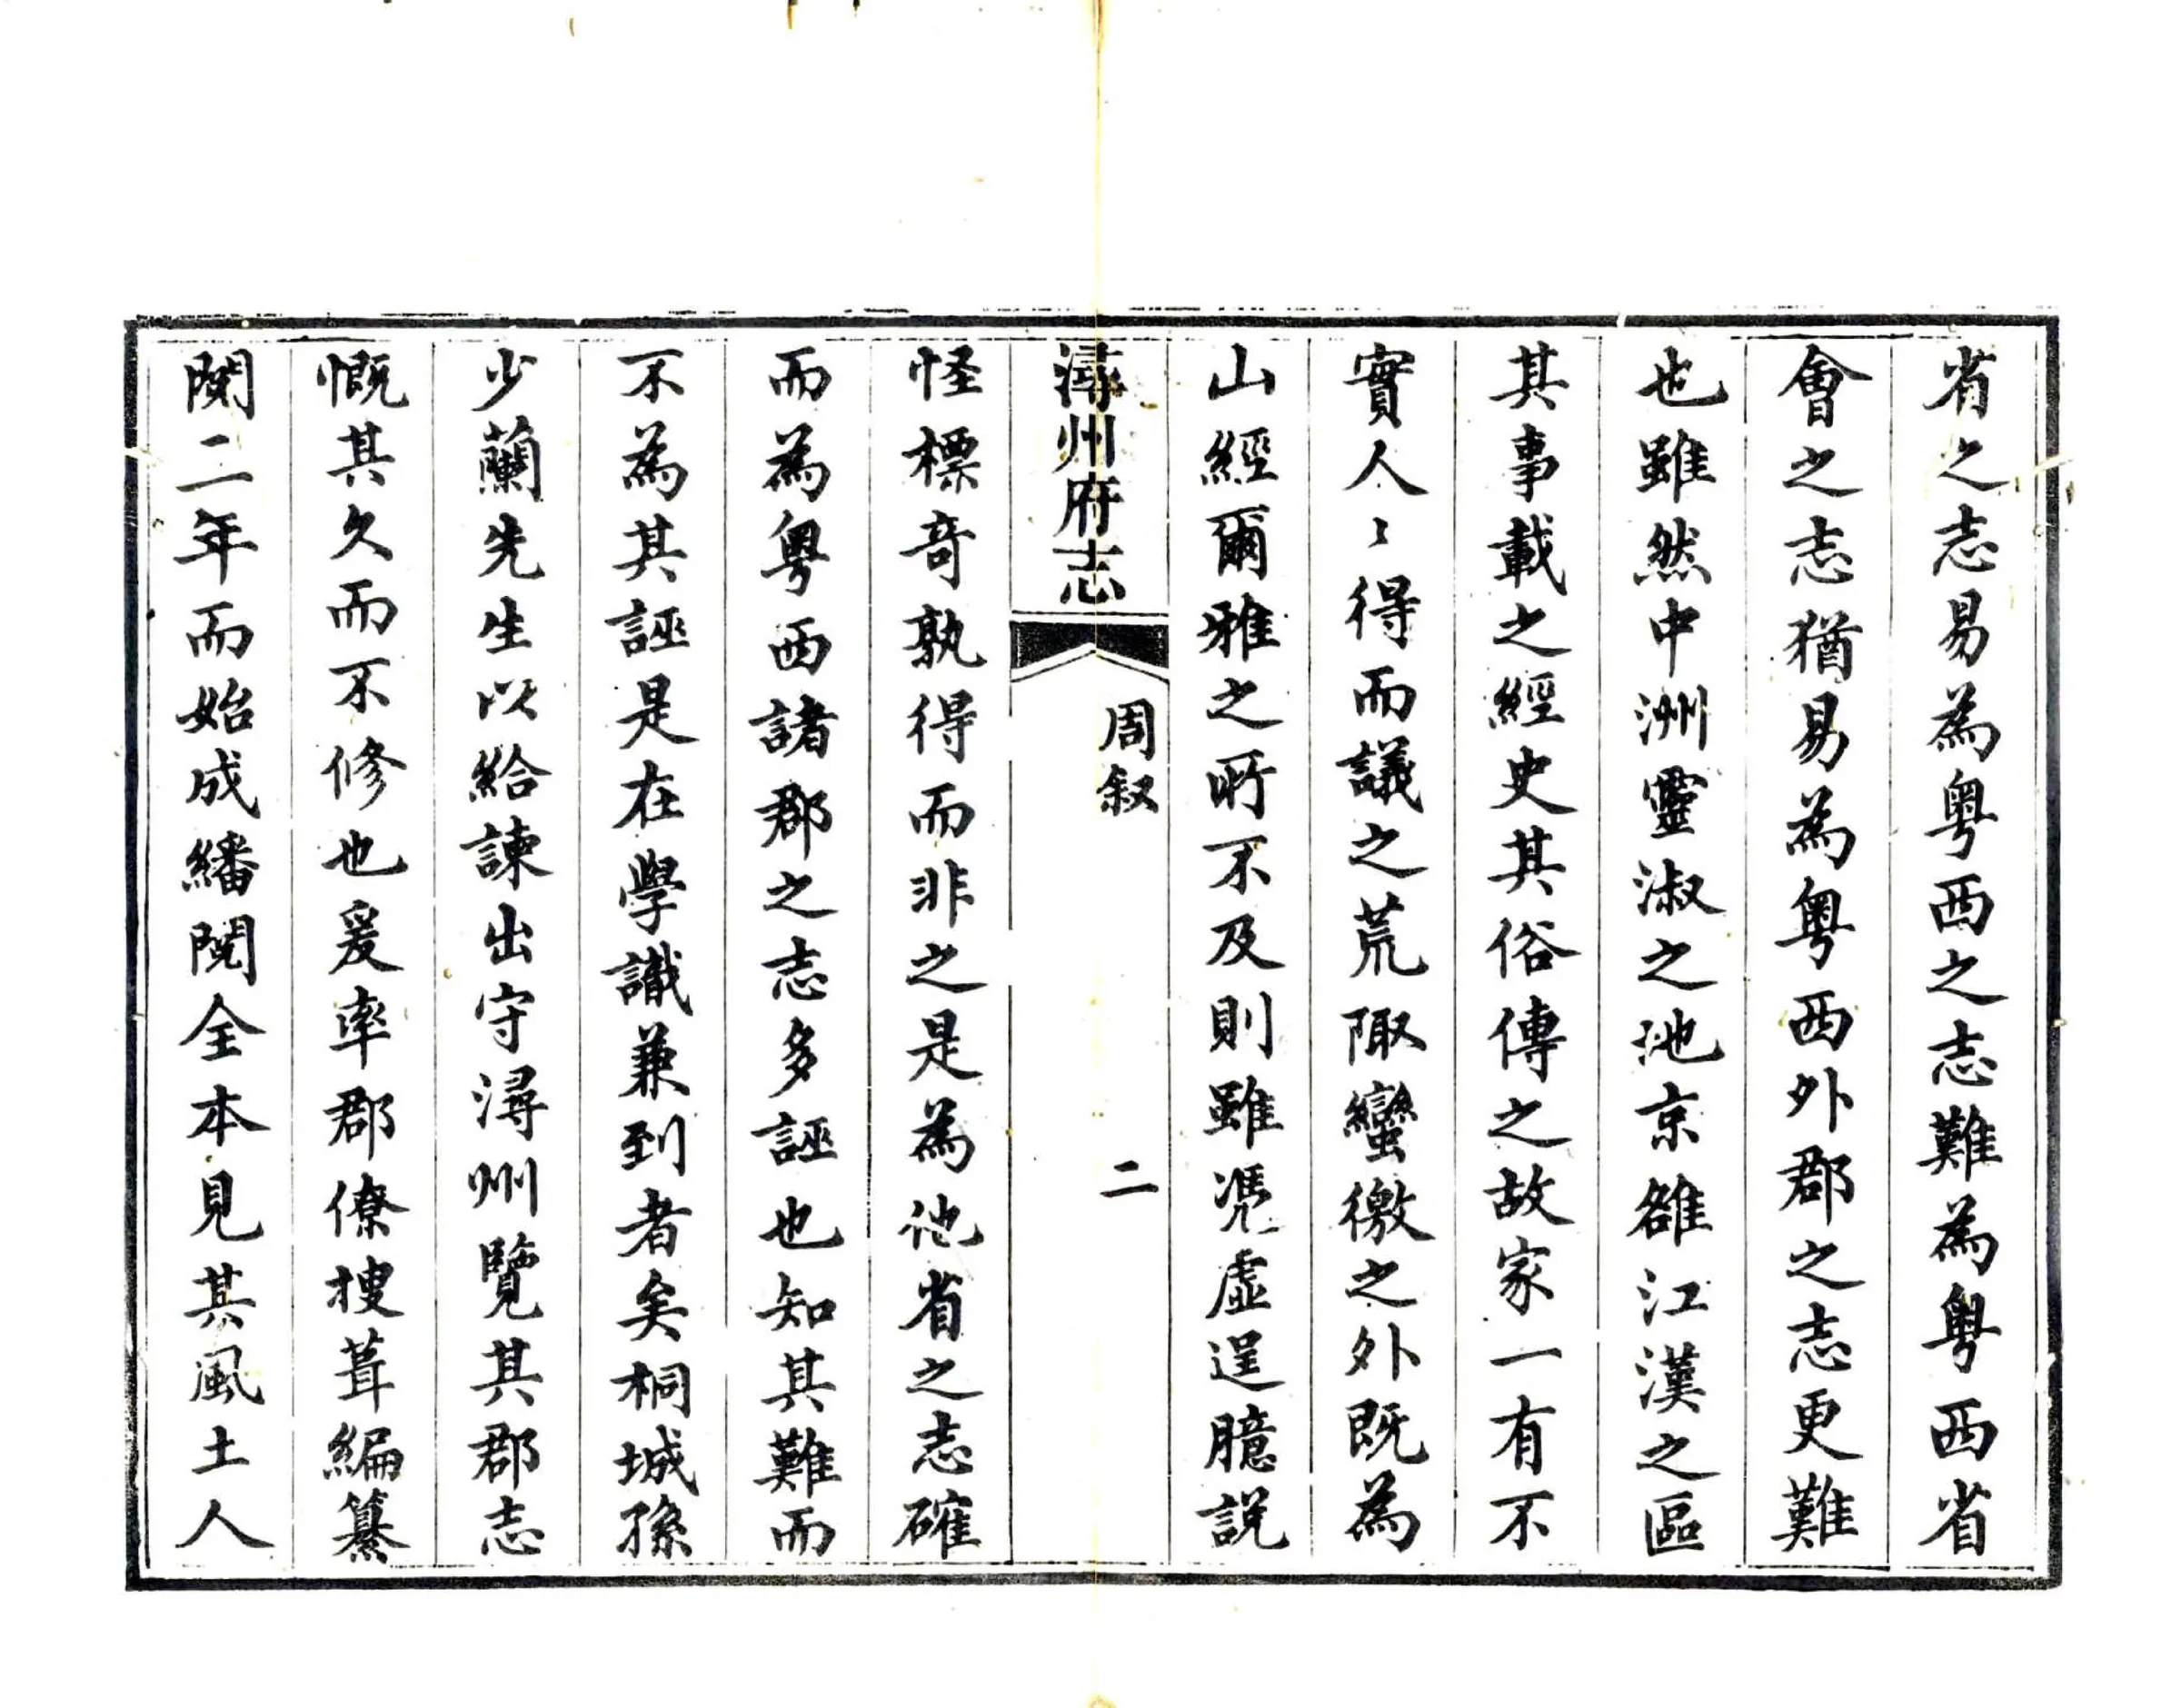 省之志易為粵西之志難為粵西省
會之志猶易為粵西外郡之志更難
也雖然中洲靈淑之地京雒江漢之區
其事載之經史其俗傳之故家一有不
實人〻得而議之荒陬蠻徼之外既為
山經爾雅之所不及則雖憑虛逞臆說
潯州府志
周叙
二
怪標奇孰得而非之是為他省之志確
而為粵西諸郡之志多誣也知其難而
不為其誣是在學識兼到者矣桐城孫
少蘭先生以給諫出守潯州覽其郡志
慨其久而不修也爰率郡僚搜葺編纂
閱二年而始成繙閱全本見其風土人